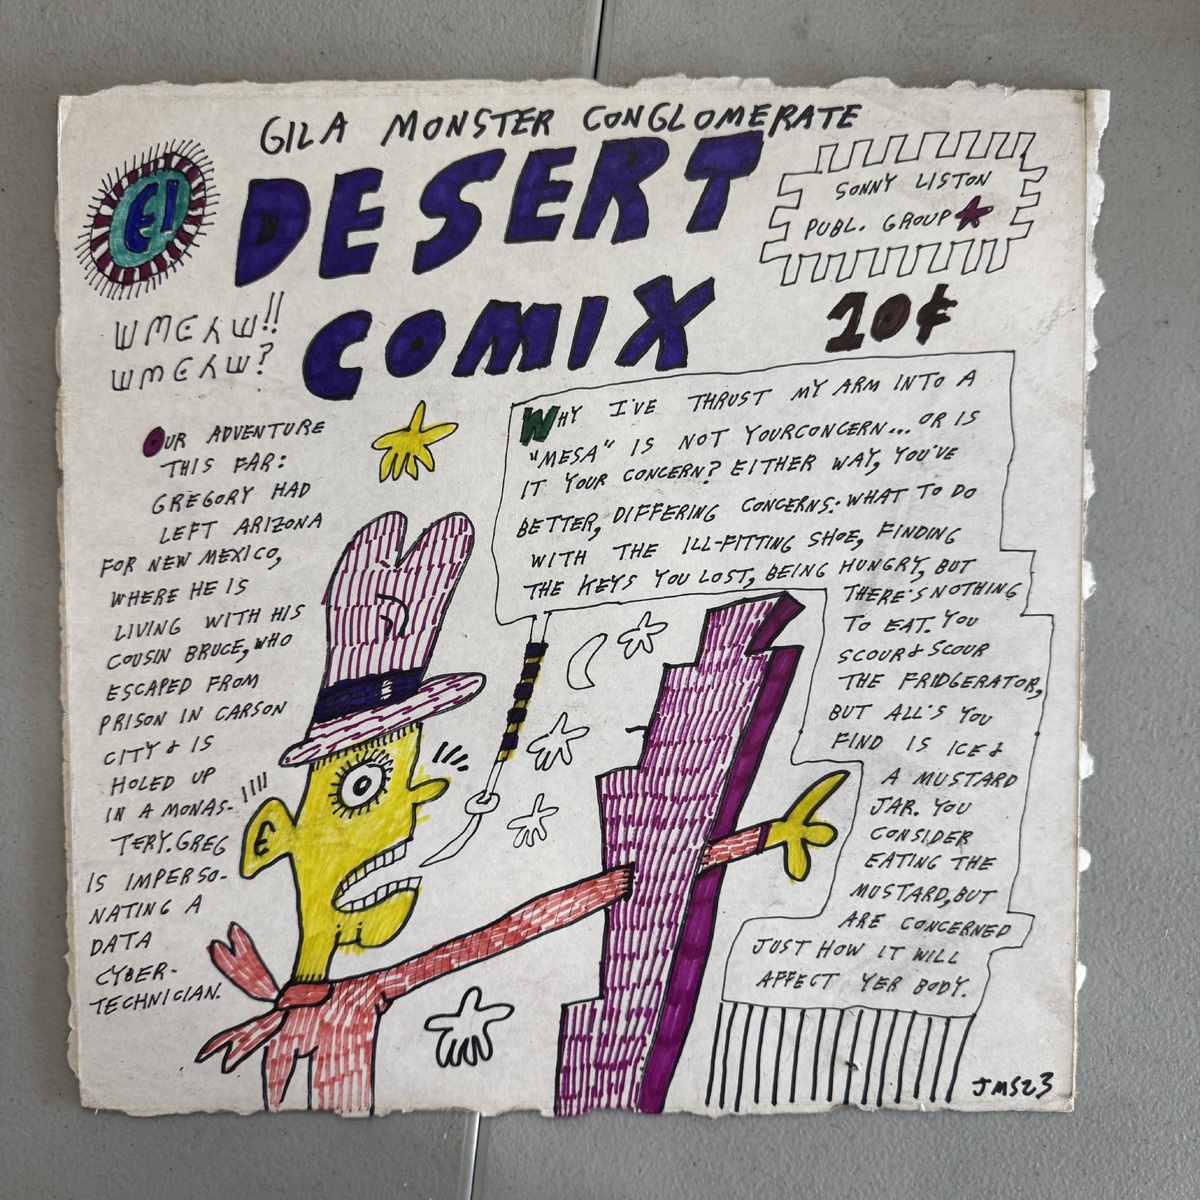 GILA MONSTER CONGLOMERATE
DESERT
COMIX
SONNY LISTON
PUBL. GROUP
10¢
OUR ADVENTURE
THIS FAR:
GREGORY HAD
LEFT ARIZONA
FOR NEW MEXICO,
WHERE HE IS
LIVING WITH HIS
COUSIN BRUCE, WHO
ESCAPED FROM
PRISON IN CARSON
CITY & IS
HOLED UP
IN A MONAS-
TERY. GREG
IS IMPERSO-
NATING A
DATA
CYBER-
TECHNICIAN.
WHY I'VE THRUST MY ARM INTO A
"MESA" IS NOT YOURCONCERN... OR IS
IT YOUR CONCERN? EITHER WAY, YOU'VE
BETTER, DIFFERING CONCERNS: WHAT TO DO
WITH THE ILL-FITTING SHOE, FINDING
THE KEYS YOU LOST, BEING HUNGRY, BUT
THERE'S NOTHING
TO EAT. YOU
SCOUR & SCOUR
THE FRIDGERATOR,
BUT ALL'S YOU
FIND IS ICE &
A MUSTARD
JAR. YOU
CONSIDER
EATING THE
MUSTARD, BUT
ARE CONCERNED
JUST HOW IT WILL
AFFECT YER BODY.
JMS23